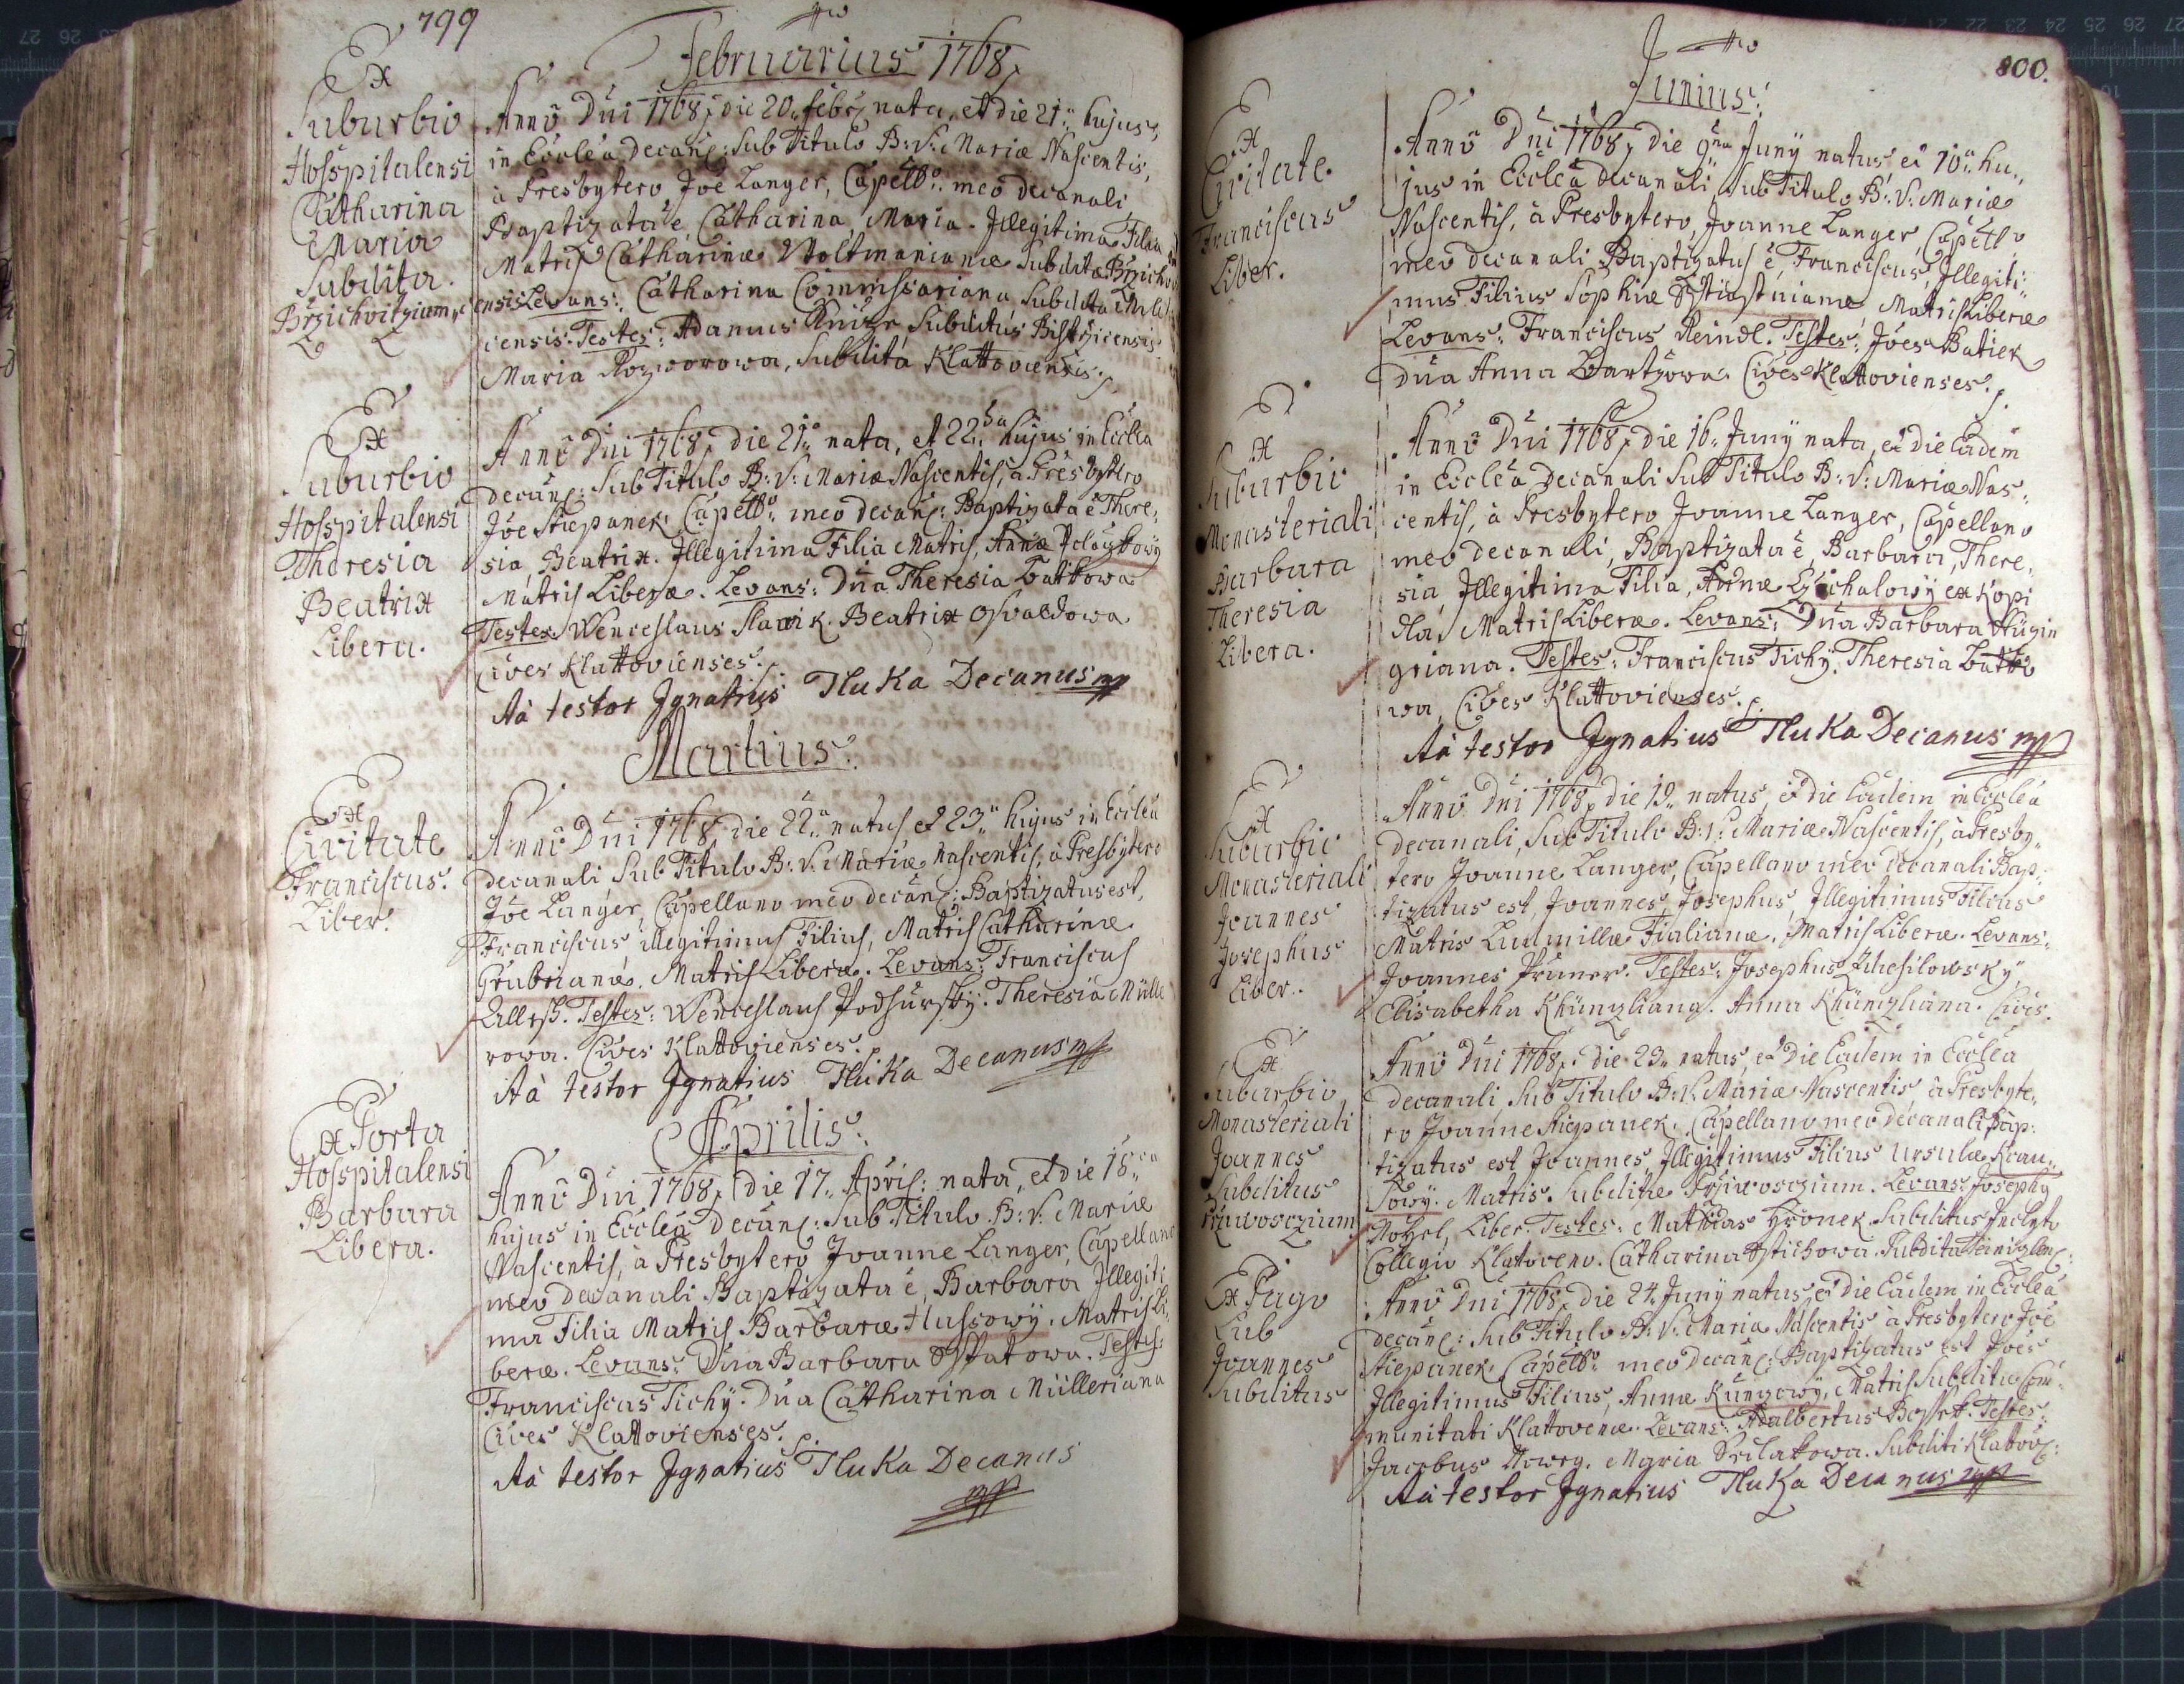 799
Februarius 1768
Ex
Suburbio
Hosspitalensi
Catharina
Maria
Subdita
Brzichvitzium
Anno Dni 1768, die 20. febr: nata, et die 21. hujus,
in Eccle'a Decan: Sub Titulo B: V: Mariæ Nascentis,
à Presbytero Joe Langer, Capellº meo decanali
Baptizata e, Catharina, Maria. Illegitima Filia
Matris Catharinæ Woltmanianæ Subditæ Brzichvi
ensis Levans: Catharina Commissariana Subdita
censis. Testes: Adamus Knize Subditus Bistrzicensis
Maria Rozworowa, Subdita Klattoviensis.
Ex
Suburbio
Hosspitalensi
Theresia
Beatrix
Libera.
Anno Dni 1768, die 21. nata, et 22. hujus in Eccle'a
decan: Sub Titulo B: V: Mariæ Nascentis, à Presbytero
Joe Stiepanek Capellº meo decan: Baptizata e There,
sia, Beatrix. Illegitima Filia Matris, Annæ
Matris Liberæ. Levans: Dna Theresia Battkowa
Testes. Wenceslaus Slawik. Beatrix Osvaldowa
Cives Klattovienses.
Atà testor Ignatius Tluka Decanus mp
Martius.
Ex
Civitate
Franciscus.
Liber.
Anno Dni 1768 die 22. natus et 23. hujus in Eccle'a
decanali Sub Titulo B: V: Mariæ Nascentis, à Presbytero
Joe Langer, Capellano meo decan: Baptizatus est,
Franciscus illegitimus Filius, Matris Catharinæ
Grubrianæ. Matris Liberæ. Levans: Franciscus
Testes: Wenceslaus Podhursky. Theresia Mülle
rowa. Cives Klattovienses.
Atà testor Ignatius Tluka Decanus mp
Aprilis.
Ex Porta
Hosspitalensi
Barbara
Libera.
Anno Dni 1768, die 17. April: nata, et die 18.
hujus in Eccle'a Decan: Sub Titulo B: V: Mariæ
Nascentis, à Presbytero Joanne Langer, Capellano
meo decanali Baptizata e, Barbara Illegiti
ma Filia Matris Barbaræ Hussowÿ. Matris Li,
beræ. Levans: Dna Barbara Testes:
Franciscus Tichÿ. Dna Catharina Mülleriana
Cives Klattovienses.
Atà testor Ignatius Tluka Decanus
mp
800.
Junius.
Ex
Civitate.
Franciscus
Liber.
Anno Dni 1768, die 9na Junÿ natus, et 10. hu,,
jus in Eccle'a Decanali, Sub Titulo B: V: Mariæ
Nascentis, à Presbytero, Joanne Langer, Capellº
meo decanali Baptizatus e, Franciscus, Illegiti:
mus Filius Sophiæ Matris Liberæ
Levans: Franciscus Reindl. Testes: Joes Batiek
Dna Anna Bartzowa. Cives Klattovienses.
Ex
Suburbio
Monasteriali
Barbara
Theresia
Libera.
Anno Dni 1768, die 16. Junÿ nata, et die Eadem
in Eccle'a Decanali Sub Titulo B: V: Mariæ Nas:
centis, à Presbytero Joanne Langer, Capellano
meo decanali, Baptizata e, Barbara, There,
sia, Illegitima Filia, Annæ ex Kopi
dla, Matris Liberæ. Levans: Dna Barbara Hügin
griana. Testes: Franciscus Tichÿ. Theresia Battko
wa, Cives Klattovienses.
Atà testor Ignatius Tluka Decanus mp
Ex
Suburbio
Monasteriali
Joannes
Josephus
Liber.
Anno Dni 1768, die 19. natus, et die Eadem in Eccle'a
decanali, Sub Titulo B: V: Mariæ Nascentis, à Presby,,
tero Joanne Langer, Capellano meo decanali Bap:
tizatus est, Joannes, Josephus, Illegitimus Filius
Matris Ludmillæ Fialianæ. Matris Liberæ. Levans:
Joannes Pruner. Testes: Josephus
Elisabetha Khünzliana. Anna Khünzliana. Cives.
Ex
Suburbio
Monasteriali
Joannes
Subditus
Przuwosczium
Anno Dni 1768, die 23. natus, et Die Eadem in Eccle'a
decanali, Sub Titulo B: V: Mariæ Nascentis, à Presbyte,,
ro Joanne Stiepanek. Capellano meo decanali Bap:
tizatus est Joannes, Illegitimus Filius Ursulæ Krau,,
sowÿ. Matris. Subditæ Przuwosczium. Levans: Josephg
Liber. Testes: Mathias Hronek. Subditus Inclyto
Collegio Klatoveno. Catharina Subdita
Ex Pago
Lub
Joannes
Subditus
Anno Dni 1768, die 24. Junÿ natus, et Die Eadem in Eccle'a
decan: Sub Titulo B: V: Mariæ Nascentis à Presbytero Joe
Stiepanek, Capellº meo Decan: Baptizatus est Joes
Illegitimus Filius, Annæ Kunzowÿ, Matris Subditæ Com
munitati Klattovenæ. Levans: Adalbertus Testes:
Jacobus Nowy. Maria Sedlakowa. Subditi Klattov:
Atà testor Ignatius Tluka Decanus mp